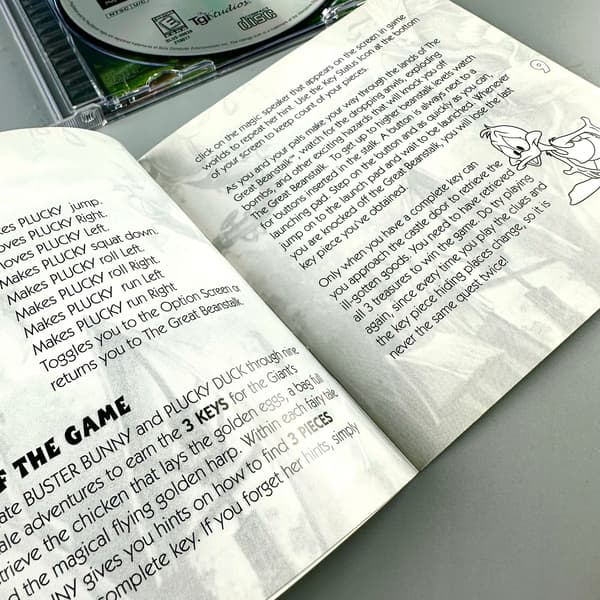 TDK Studios
disc
kes PLUCKY jump.
oves PLUCKY Right.
oves PLUCKY Left.
Makes PLUCKY squat down.
Makes PLUCKY roll Left.
Makes PLUCKY roll Right.
Makes PLUCKY run Left
Makes PLUCKY run Right
Toggles you to the Option Screen or
returns you to The Great Beanstalk.
F THE GAME
ate BUSTER BUNNY and PLUCKY DUCK through nine
ale adventures to earn the 3 KEYS for the Giant's
etrieve the chicken that lays the golden eggs, a bag full
d the magical flying golden harp. Within each fairy tale
NNY gives you hints on how to find 3 PIECES
complete key. If you forget her hints, simply
click on the magic speaker that appears on the screen in game
worlds to repeat her hint. Use the Key Status Icon at the bottom
of your screen to keep count of your pieces.
As you and your pals make your way through the lands of The
Great Beanstalk™, watch for the dropping anvils, exploding
bombs, and other exciting hazards that will knock you off
The Great Beanstalk. To get up to higher beanstalk levels watch
for buttons inserted in the stalk. A button is always next to a
launching pad. Step on the button and as quickly as you can,
jump on to the launch pad and wait to be launched. Whenever
you are knocked off the Great Beanstalk, you will lose the last
key piece you've obtained.
Only when you have a complete key can
you approach the castle door to retrieve the
ill-gotten goods. You need to have retrieved
all 3 treasures to win the game. Do try playing
again, since every time you play the clues and
the key piece hiding places change, so it is
never the same quest twice!
9